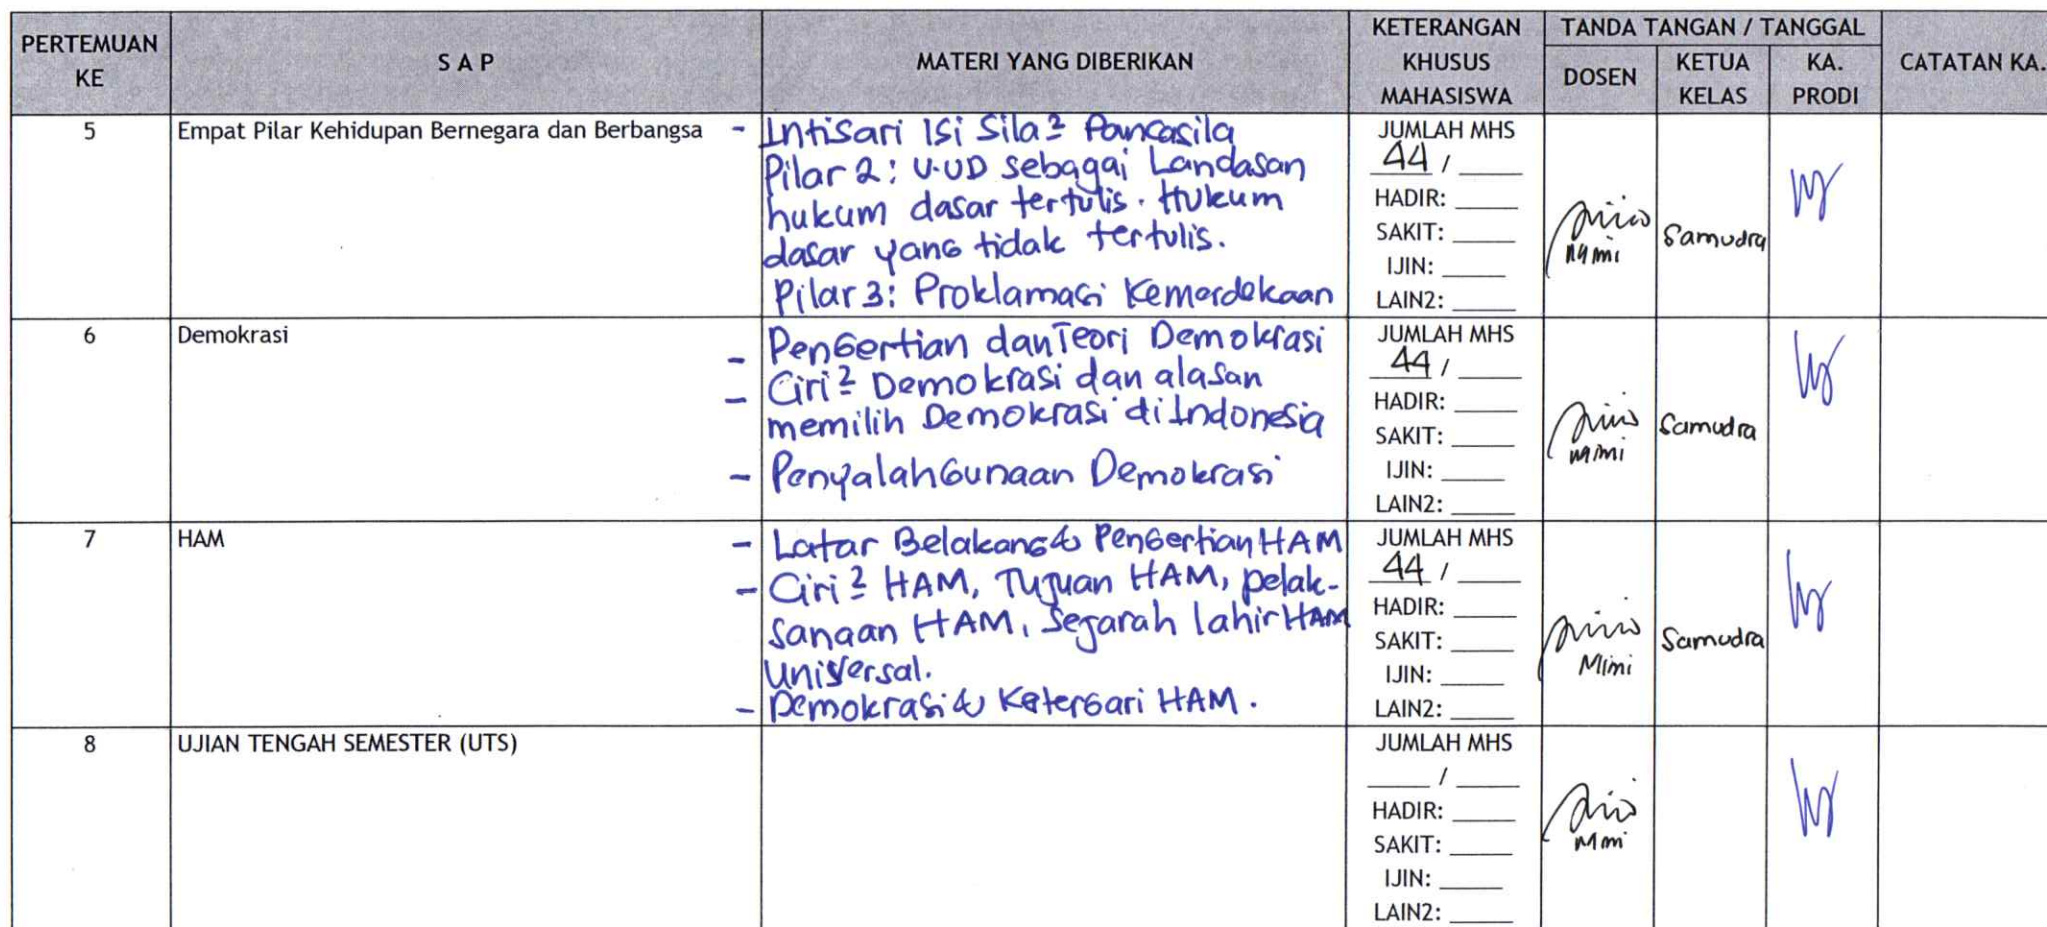 PERTEMUAN KE
S A P
MATERI YANG DIBERIKAN
KETERANGAN KHUSUS MAHASISWA
TANDA TANGAN / TANGGAL
DOSEN
KETUA KELAS
KA. PRODI
CATATAN KA.
5
Empat Pilar Kehidupan Bernegara dan Berbangsa
- Intisari Isi Sila² Pancasila
Pilar 2: U.UD sebagai Landasan
hukum dasar tertulis. Hukum
dasar yang tidak tertulis.
Pilar 3: Proklamasi Kemerdekaan
JUMLAH MHS
44 / ____
HADIR: ____
SAKIT: ____
IJIN: ____
LAIN2: ____
Mimi
Samudra
6
Demokrasi
- Pengertian dan Teori Demokrasi
- Ciri² Demokrasi dan alasan
memilih Demokrasi di Indonesia
- Penyalahgunaan Demokrasi
JUMLAH MHS
44 / ____
HADIR: ____
SAKIT: ____
IJIN: ____
LAIN2: ____
Mimi
Samudra
7
HAM
- Latar Belakang & Pengertian HAM
- Ciri² HAM, Tujuan HAM, pelak-
sanaan HAM, Sejarah lahir HAM
Universal.
- Demokrasi & HAM.
JUMLAH MHS
44 / ____
HADIR: ____
SAKIT: ____
IJIN: ____
LAIN2: ____
Mimi
Samudra
8
UJIAN TENGAH SEMESTER (UTS)
JUMLAH MHS
____ / ____
HADIR: ____
SAKIT: ____
IJIN: ____
LAIN2: ____
Mimi